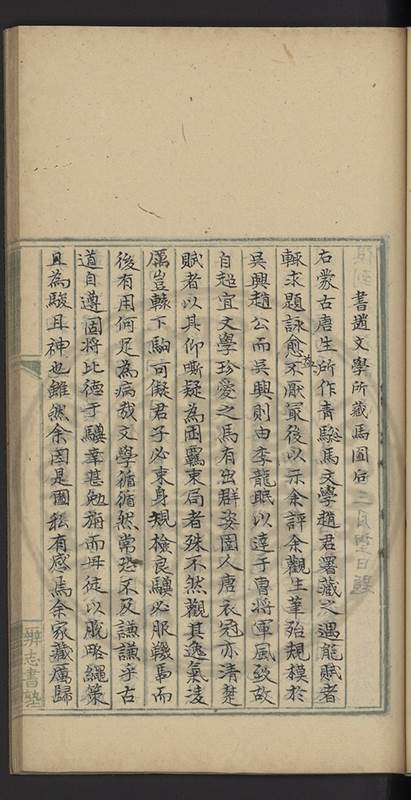 書趙文學所藏馬圖后 二月望日題
右蒙古唐生所作青驄馬文學趙君署藏之遇能賦者
輒求題詠愈益不厭最後以示余評余觀生筆殆規模於
吳興趙公而吳興則由李龍眠以達于曹將軍風致故
自超宜文學珍愛之馬有出群姿圉人唐衣冠亦清楚
賦者以其仰嘶疑為困羈束局者殊不然觀其逸氣凌
厲豈轅下駒可儗君子必束身規檢良驥必服羈馽而
後有用何足為病哉文學循循然常恐不及謙謙乎古
道自遵固將比德于驥幸甚勉旃而毋徒以脫略繩策
且為駿且神也雖然余因是圖私有感焉余家藏厲歸
辨志書塾